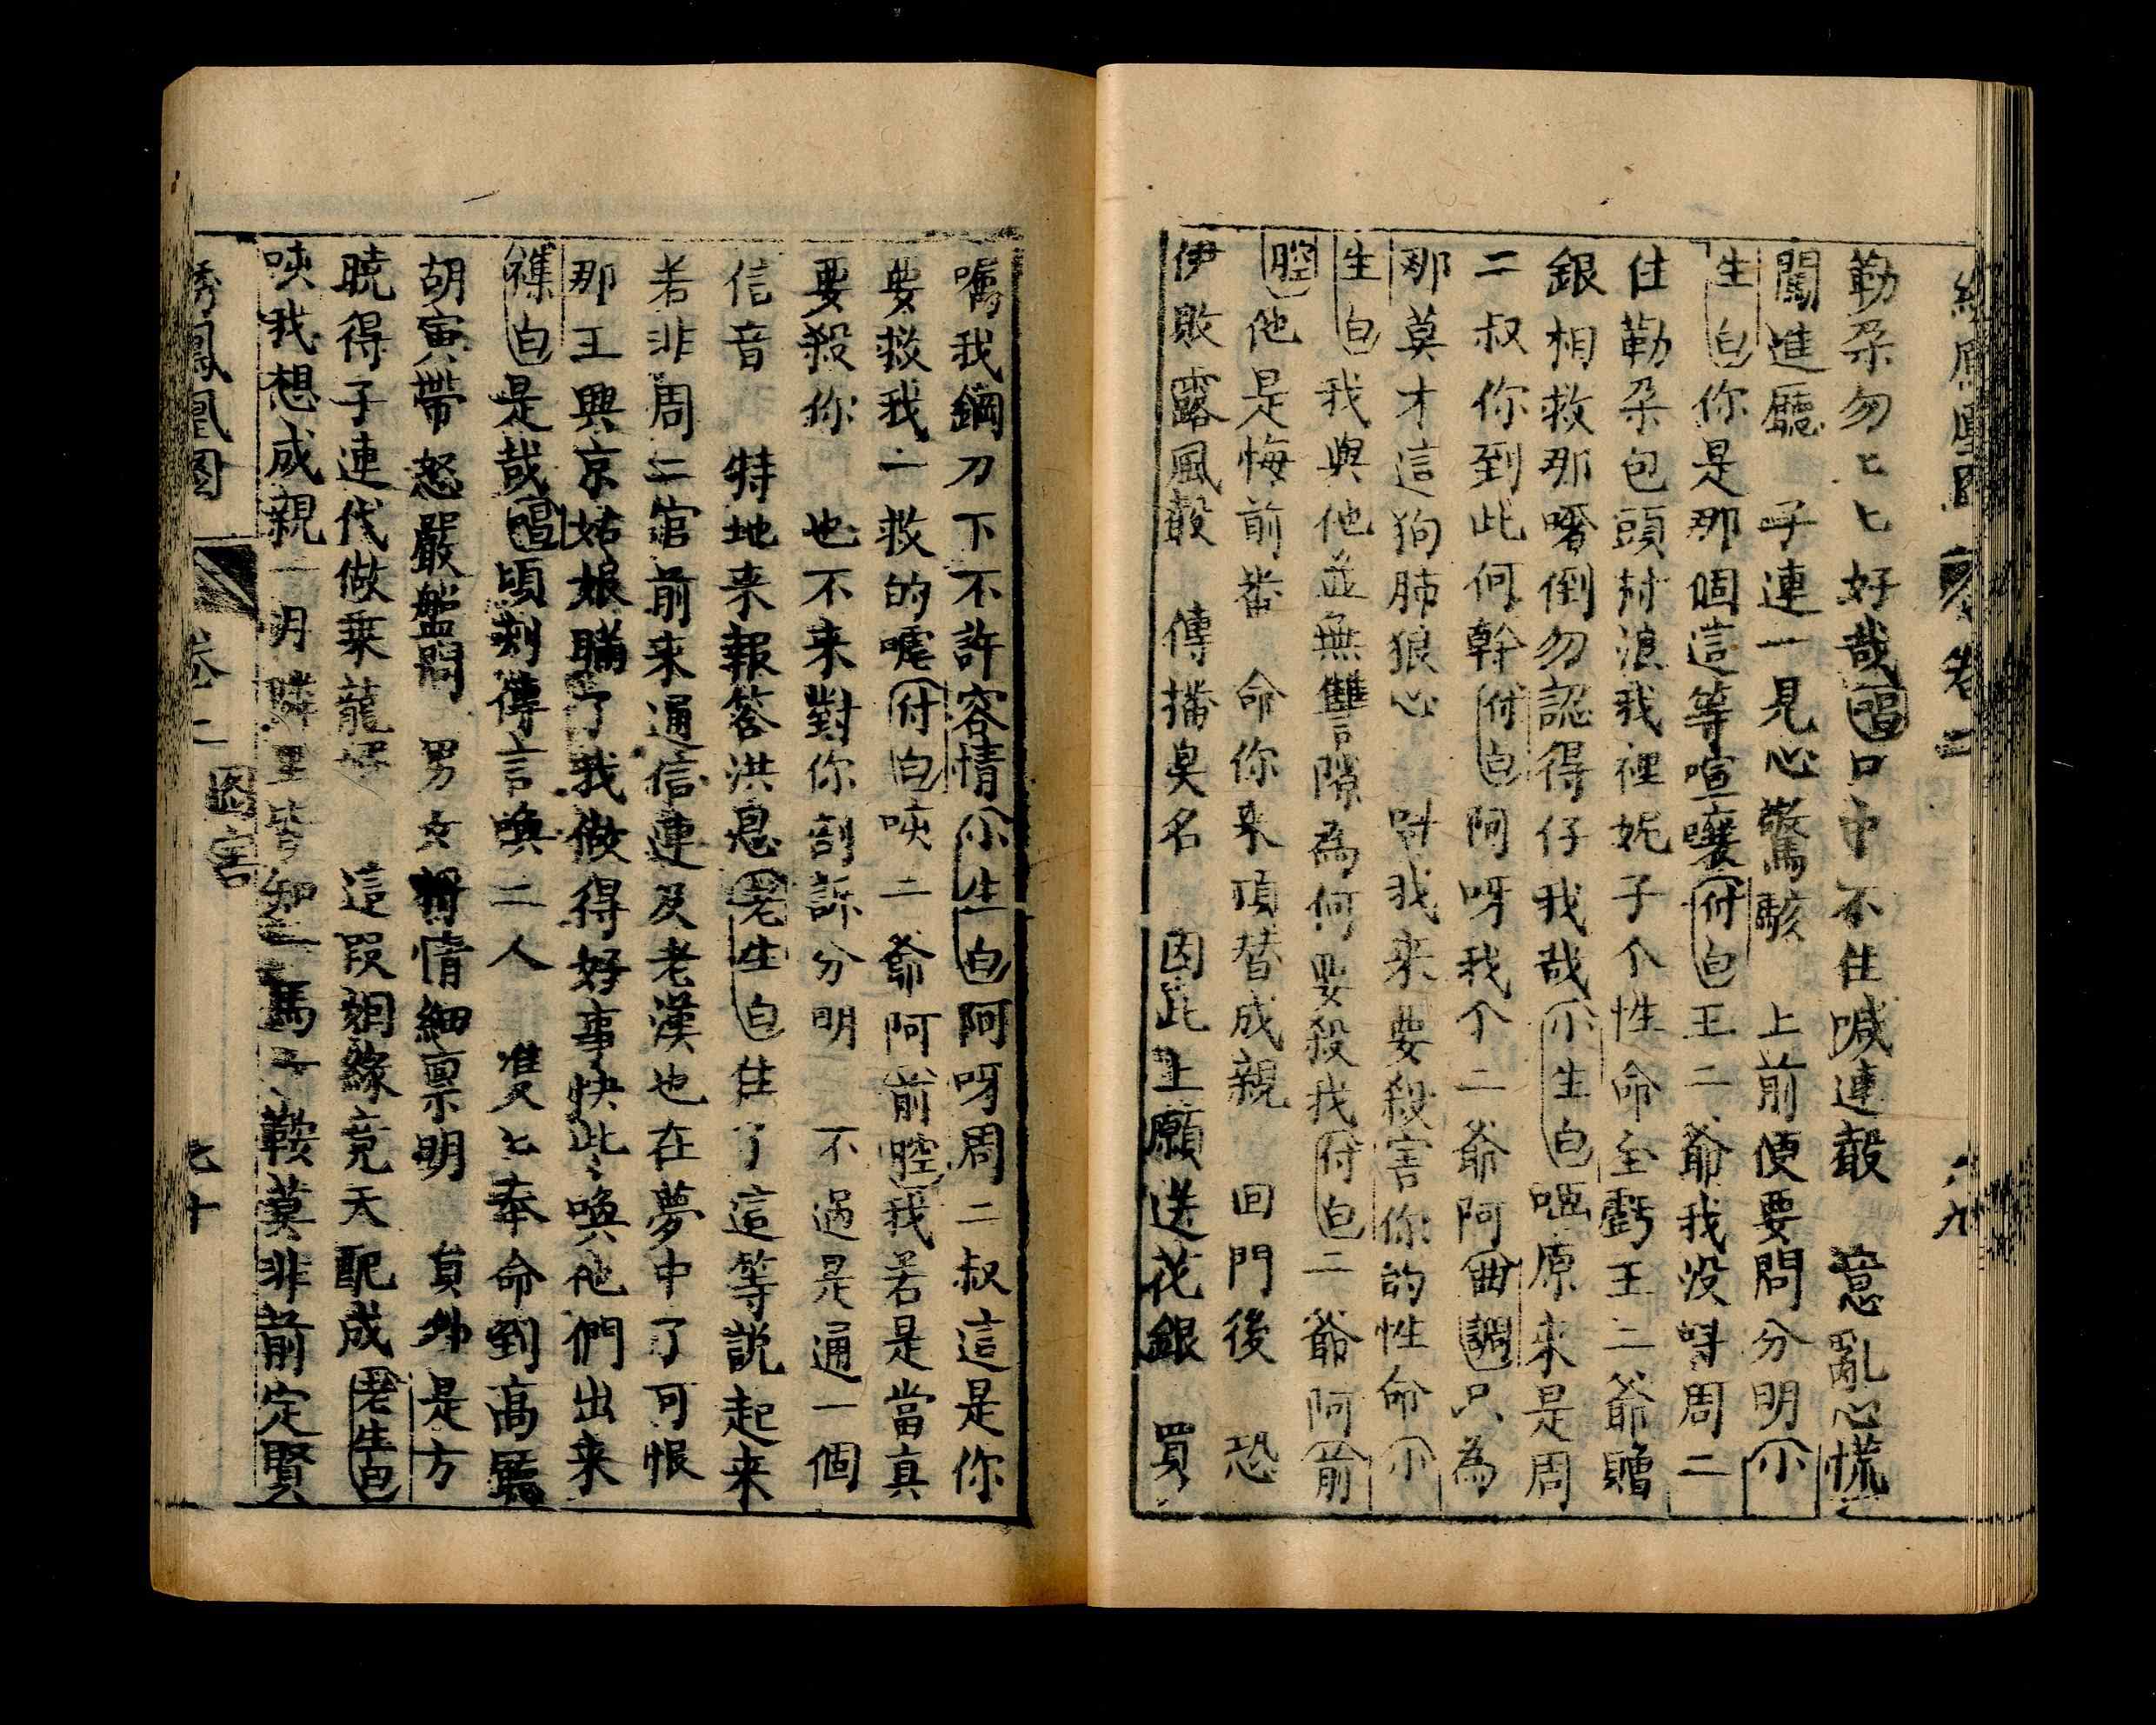 勒朶勿匕匕好哉唱口中不住喊連嗀　意亂心慌
闖進廳　子連一見心驚駭　上前便要問分明小
生白你是那個這等喧嚷付白王二爺我没時周二
住勒朶包頭村浪我裡妮子个性命至虧王二爺贈
銀相救那嗜倒勿認得仔我哉小生白嗯原来是周
二叔你到此何幹付白阿呀我个二爺阿西調只為
那莫才這狗肺狼心　呌我来要殺害你的性命小
生白我與他並無讐隙為何要殺我付白二爺阿前
腔他是悔前番　命你来頂替成親　回門後　恐
伊敗露風嗀　傳播臭名　因此上願送花銀　買
嘱我鋼刀下不許容情小生白阿呀周二叔這是你
要救我一救的嘘付白唊二爺阿前腔我若是當真
要殺你　也不来對你剖訴分明　不過是通一個
信音　特地来報答洪恩老生白住了這等説起来
若非周二舘前来通信連及老漢也在夢中了可恨
那王興京姑娘瞞了我做得好事快些唤他們出来
襍白是哉唱頃刻傳言喚二人　雙匕奉命到高廳
胡寅帶怒嚴盤問　男女揹情細禀明　負外是方
曉得子連代做乗龍壻　這叚姻緣竟天配成老生白
唊我想成親一月隣里皆知　馬　鞍莫非前定賢
綉鳳凰图　卷二　图害　七十